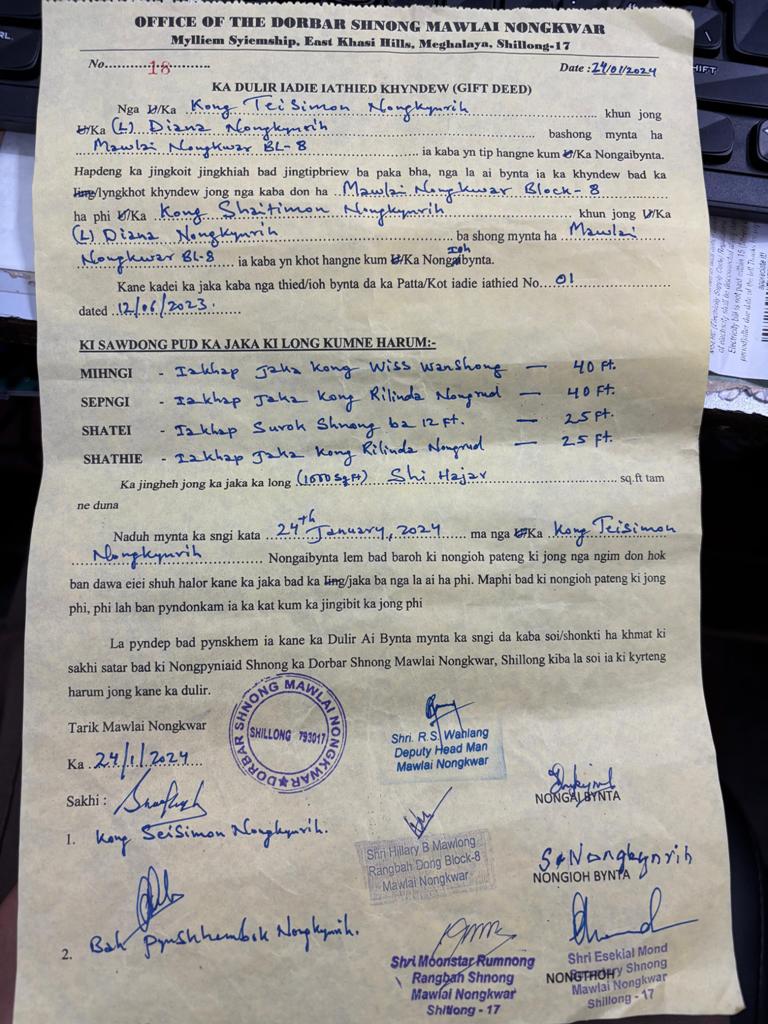 OFFICE OF THE DORBAR SHNONG MAWLAI NONGKWAR
Mylliem Syiemship, East Khasi Hills, Meghalaya, Shillong-17
No. 18 Date : 24/01/2024
KA DULIR IADIE IATHIED KHYNDEW (GIFT DEED)
Nga U/Ka Kong TeiSimon Nongkynrih khun jong
U/Ka (L) Diana Nongkynrih bashong mynta ha
Mawlai Nongkwar BL-8 ia kaba yn tip hangne kum U/Ka Nongaibynta.
Hapdeng ka jingkoit jingkhiah bad jingtipbriew ba paka bha, nga la ai bynta ia ka khyndew bad ka
ling/lyngkhot khyndew jong nga kaba don ha Mawlai Nongkwar Block-8
ha phi U/Ka Kong Shaitimon Nongkynrih khun jong U/Ka
(L) Diana Nongkynrih ba shong mynta ha Mawlai
Nongkwar BL-8 ia kaba yn khot hangne kum U/Ka Nongiohbynta.
Kane kadei ka jaka kaba nga thied/ioh bynta da ka Patta/Kot iadie iathied No. 01
dated 12/06/2023.
KI SAWDONG PUD KA JAKA KI LONG KUMNE HARUM:-
MIHNGI - Iakhap Jaka Kong Wiss Wanshong — 40 Ft.
SEPNGI - Iakhap Jaka Kong Rilinda Nongrud — 40 Ft.
SHATEI - Iakhap Surok Shnong ba 12 Ft. — 25 Ft.
SHATHIE - Iakhap Jaka Kong Rilinda Nongrud — 25 Ft.
Ka jingheh jong ka jaka ka long (1000 Sq.ft) Shi Hajar sq.ft tam
ne duna
Naduh mynta ka sngi kata 24th January, 2024 ma nga U/Ka Kong Teisimon
Nongkynrih Nongaibynta lem bad baroh ki nongioh pateng ki jong nga ngim don hok
ban dawa eiei shuh halor kane ka jaka bad ka ling/jaka ba nga la ai ha phi. Maphi bad ki nongioh pateng ki jong
phi, phi lah ban pyndonkam ia ka kat kum ka jingibit ka jong phi
La pyndep bad pynskhem ia kane ka Dulir Ai Bynta mynta ka sngi da kaba soi/shonkti ha khmat ki
sakhi satar bad ki Nongpyniaid Shnong ka Dorbar Shnong Mawlai Nongkwar, Shillong kiba la soi ia ki kyrteng
harum jong kane ka dulir.
Tarik Mawlai Nongkwar
Ka 24/1/2024
DORBAR SHNONG MAWLAI NONGKWAR
SHILLONG 793017
Shri. R.S. Wahlang
Deputy Head Man
Mawlai Nongkwar
Sakhi :
NONGAI BYNTA
1. Kong SeiSimon Nongkynrih.
Shri Hillary B Mawlong
Rangbah Dong Block-8
Mawlai Nongkwar
S. Nongkynrih
NONGIOH BYNTA
2. Bah Pynshhembok Nongkynrih.
Shri Moonstar Rumnong
Rangbah Shnong
Mawlai Nongkwar
Shillong - 17
Shri Esekial Mond
Shnong
NONGTHOH
Mawlai Nongkwar
Shillong - 17